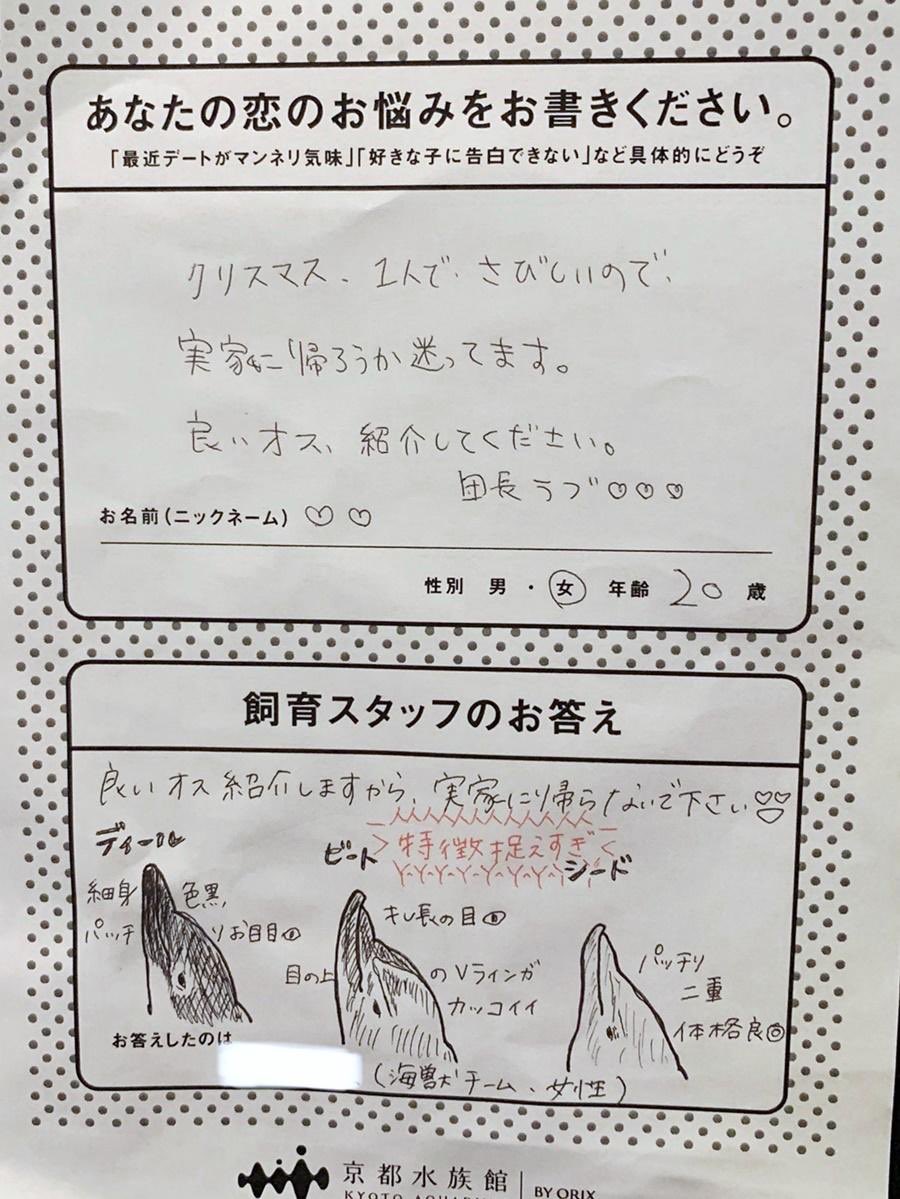 あなたの恋のお悩みをお書きください。
「最近デートがマンネリ気味」「好きな子に告白できない」など具体的にどうぞ
クリスマス、1人で、さびしいので、
実家に帰ろうか迷ってます。
良いオス、紹介してください。
団長ラブ♡♡♡
お名前(ニックネーム) ♡♡
性別 男・女 年齢 20 歳
飼育スタッフのお答え
良いオス紹介しますから、実家に帰らないで下さい♡♡♡
特徴捉えすぎ
ディール
細身 色黒
パッチリお目目
ビート
キレ長の目
目の上のVラインガ
カッコイイ
シード
パッチリ
二重
体格良
お答えしたのは
(海獣チーム、女性)
京都水族館
KYOTO AQUARI
BY ORIX